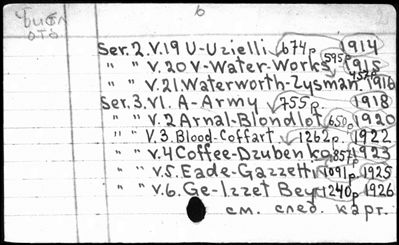 6
Ser. 2. V. 19 U-Uzielli 674p. 1914
" " V. 20 V-Water-Works 595p. 1915
" " V. 21. Waterworth-Zysman. 457p. 1916
Ser. 3. V1. A-Army 755p. 1918
" " V. 2 Arnal-Blondlot 650p. 1920
" " V. 3. Blood-Coffart 1262p. 1922
" " V. 4 Coffee-Dzubenko 857p. 1923
" " V. 5. Eade-Gazzetti 1091p. 1925
" " V. 6. Ge-Izzet Bey 1240p. 1926
см. след. карт.